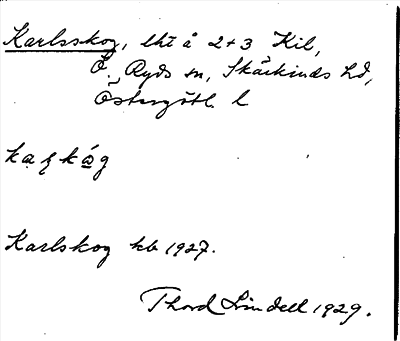 Karlsskog, lht å 2+3 Kil,
Ö. Ryds sn, Skärkinds hd,
Östergötl. l
Karlskog kb 1927.
Thord Lindell 1929.